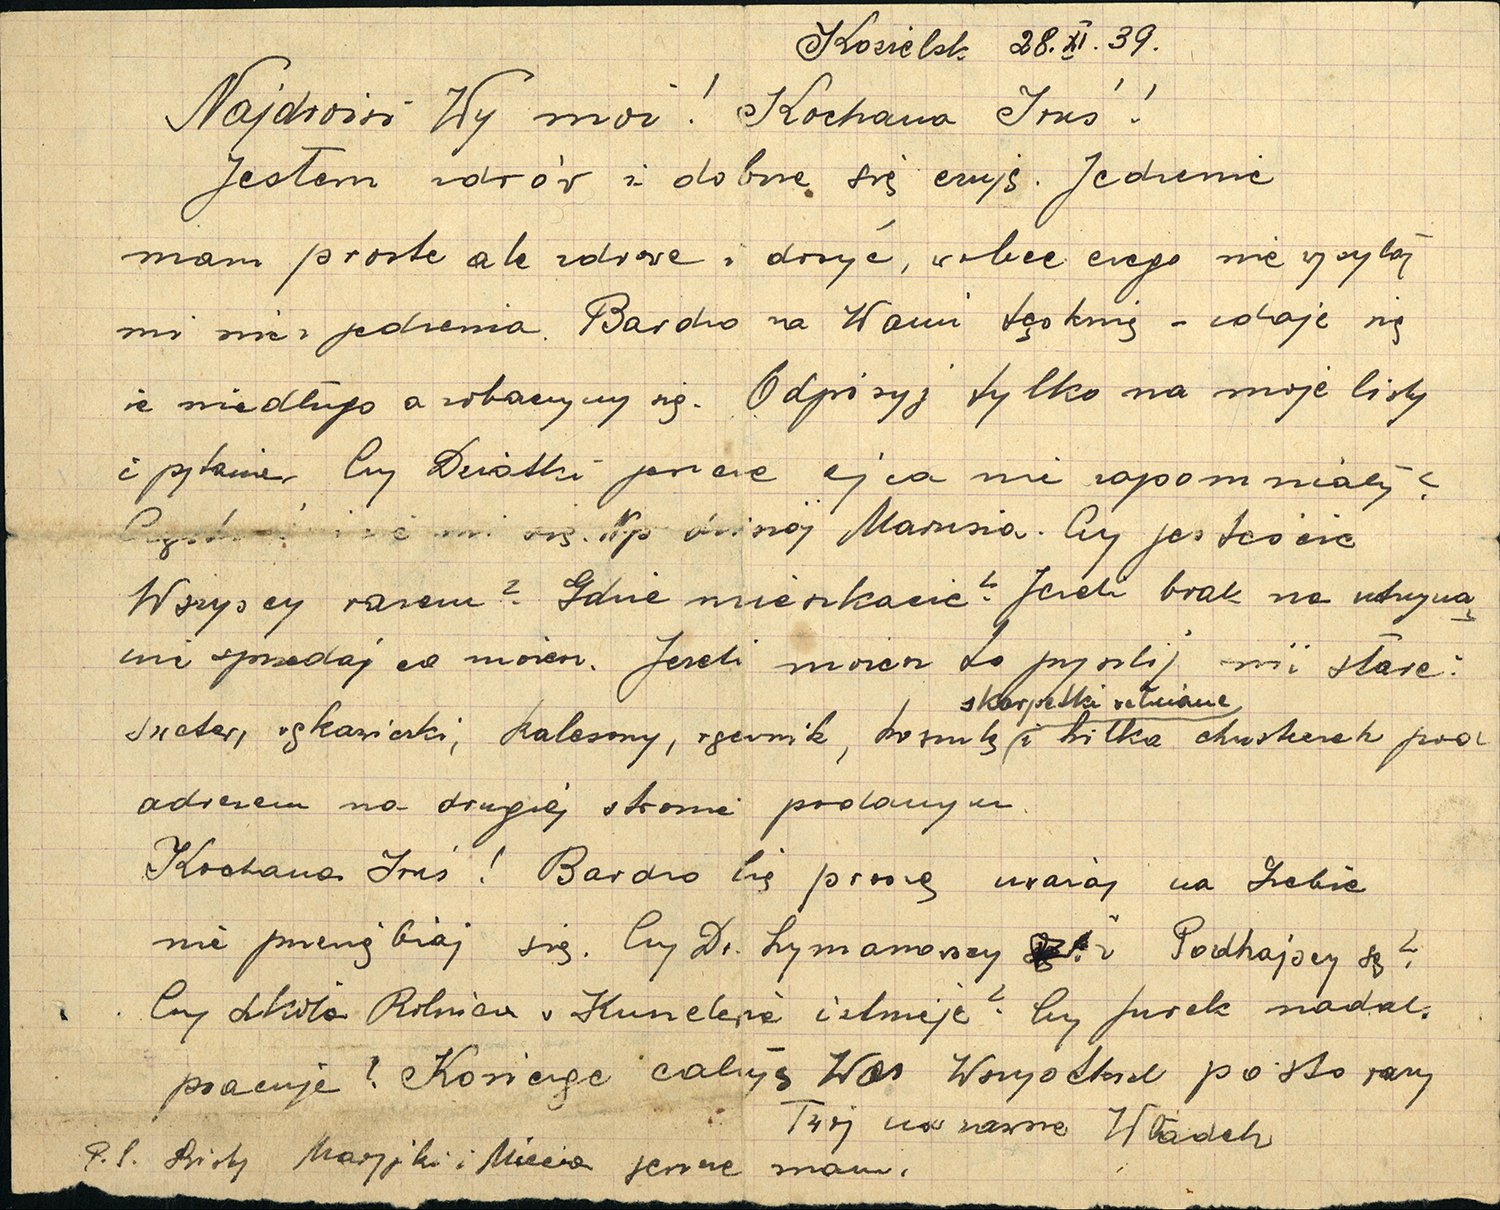 Kozielsk 28.XI.39.
Najdrożsi Wy moi! Kochana Iruś!
Jestem zdrów i dobrze się czuję. Jedzenie
mam proste ale zdrowe i dosyć, wobec czego nie wysyłaj
mi nic z jedzenia. Bardzo za Wami tęsknię – zdaje się
że niedługo zobaczymy się. Odpisuj tylko na moje listy
i pytania. Czy Dziatki jeszcze ojca nie zapomniały?
mi się. Np dzisiaj Marusia. Czy jesteście
Wszyscy razem? Gdzie mieszkacie? Jeżeli brak na utrzyma
nie sprzedaj co możesz. Jeżeli możesz to przyślij mi stare:
skarpetki wełniane
sweter, rękawiczki, kalesony, ręcznik, koszulę i kilka chusteczek pod
adresem na drugiej stronie podanym
Kochana Iruś! Bardzo Cię proszę uważaj na Siebie
nie przeziębiaj się. Czy Dr. Szymanowscy i Podhajscy są?
Czy Szkoła Rolnicza w istnieje? Czy Jurek nadal
pracuje? Kończąc całuję Was Wszystkich po sto razy
Twój na zawsze Władek
P.S. Listy Maryjki i Miecia jeszcze mam.